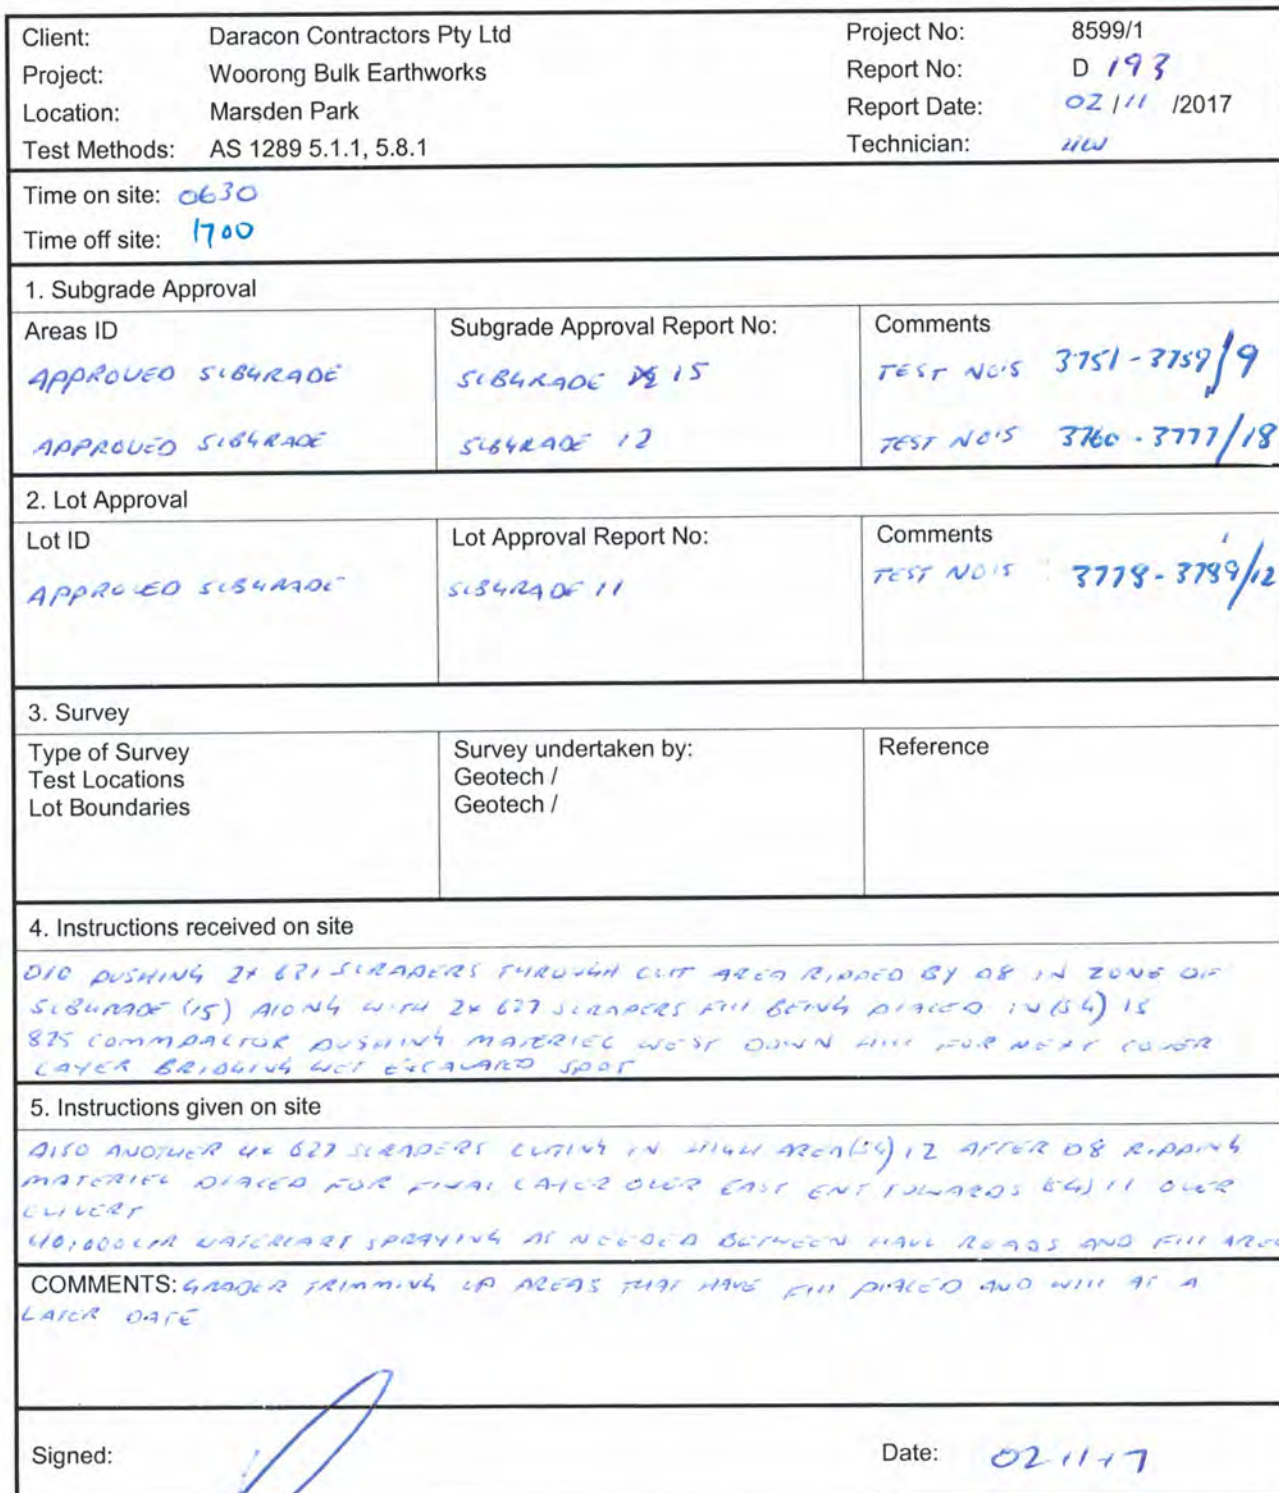 Client: Daracon Contractors Pty Ltd Project No: 8599/1
Project: Woorong Bulk Earthworks Report No: D 193
Location: Marsden Park Report Date: 02/11 /2017
Test Methods: AS 1289 5.1.1, 5.8.1 Technician:
Time on site: 0630
Time off site: 1700
1. Subgrade Approval
Areas ID Subgrade Approval Report No: Comments
APPROVED SUBGRADE SUBGRADE 15 TEST NO'S 3751-3759/9
APPROVED SUBGRADE SUBGRADE 12 TEST NO'S 3760-3777/18
2. Lot Approval
Lot ID Lot Approval Report No: Comments
APPROVED SUBGRADE SUBGRADE 11 TEST NO'S 3778-3789/12
3. Survey
Type of Survey Survey undertaken by: Reference
Test Locations Geotech /
Lot Boundaries Geotech /
4. Instructions received on site
D10 PUSHING 2x SCRAPERS THROUGH CUT AREA RIPPED BY D8 IN ZONE OF
SUBGRADE (15) ALONG WITH 2x 627 SCRAPERS FILL BEING PLACED IN (SG) 15
825 COMMPACTOR PUSHING MATERIEL WEST DOWN HILL FOR NEXT COVER
LAYER BRIDGING WET SPOT
5. Instructions given on site
ALSO ANOTHER 4x 627 SCRAPERS CUTING IN HIGH AREA (SG) 12 AFTER D8 RIPPING
MATERIEL PLACED FOR FINAL LAYER OVER EAST TOWARDS SG) 11 OVER
CULVERT
40,000 LTR WATERCART SPRAYING AS NEEDED BETWEEN HAUL ROADS AND FILL AREA
COMMENTS: GRADER TRIMMING UP AREAS THAT HAVE FILL PLACED AND WILL AT A
LATER DATE
Signed: Date: 02-11-17